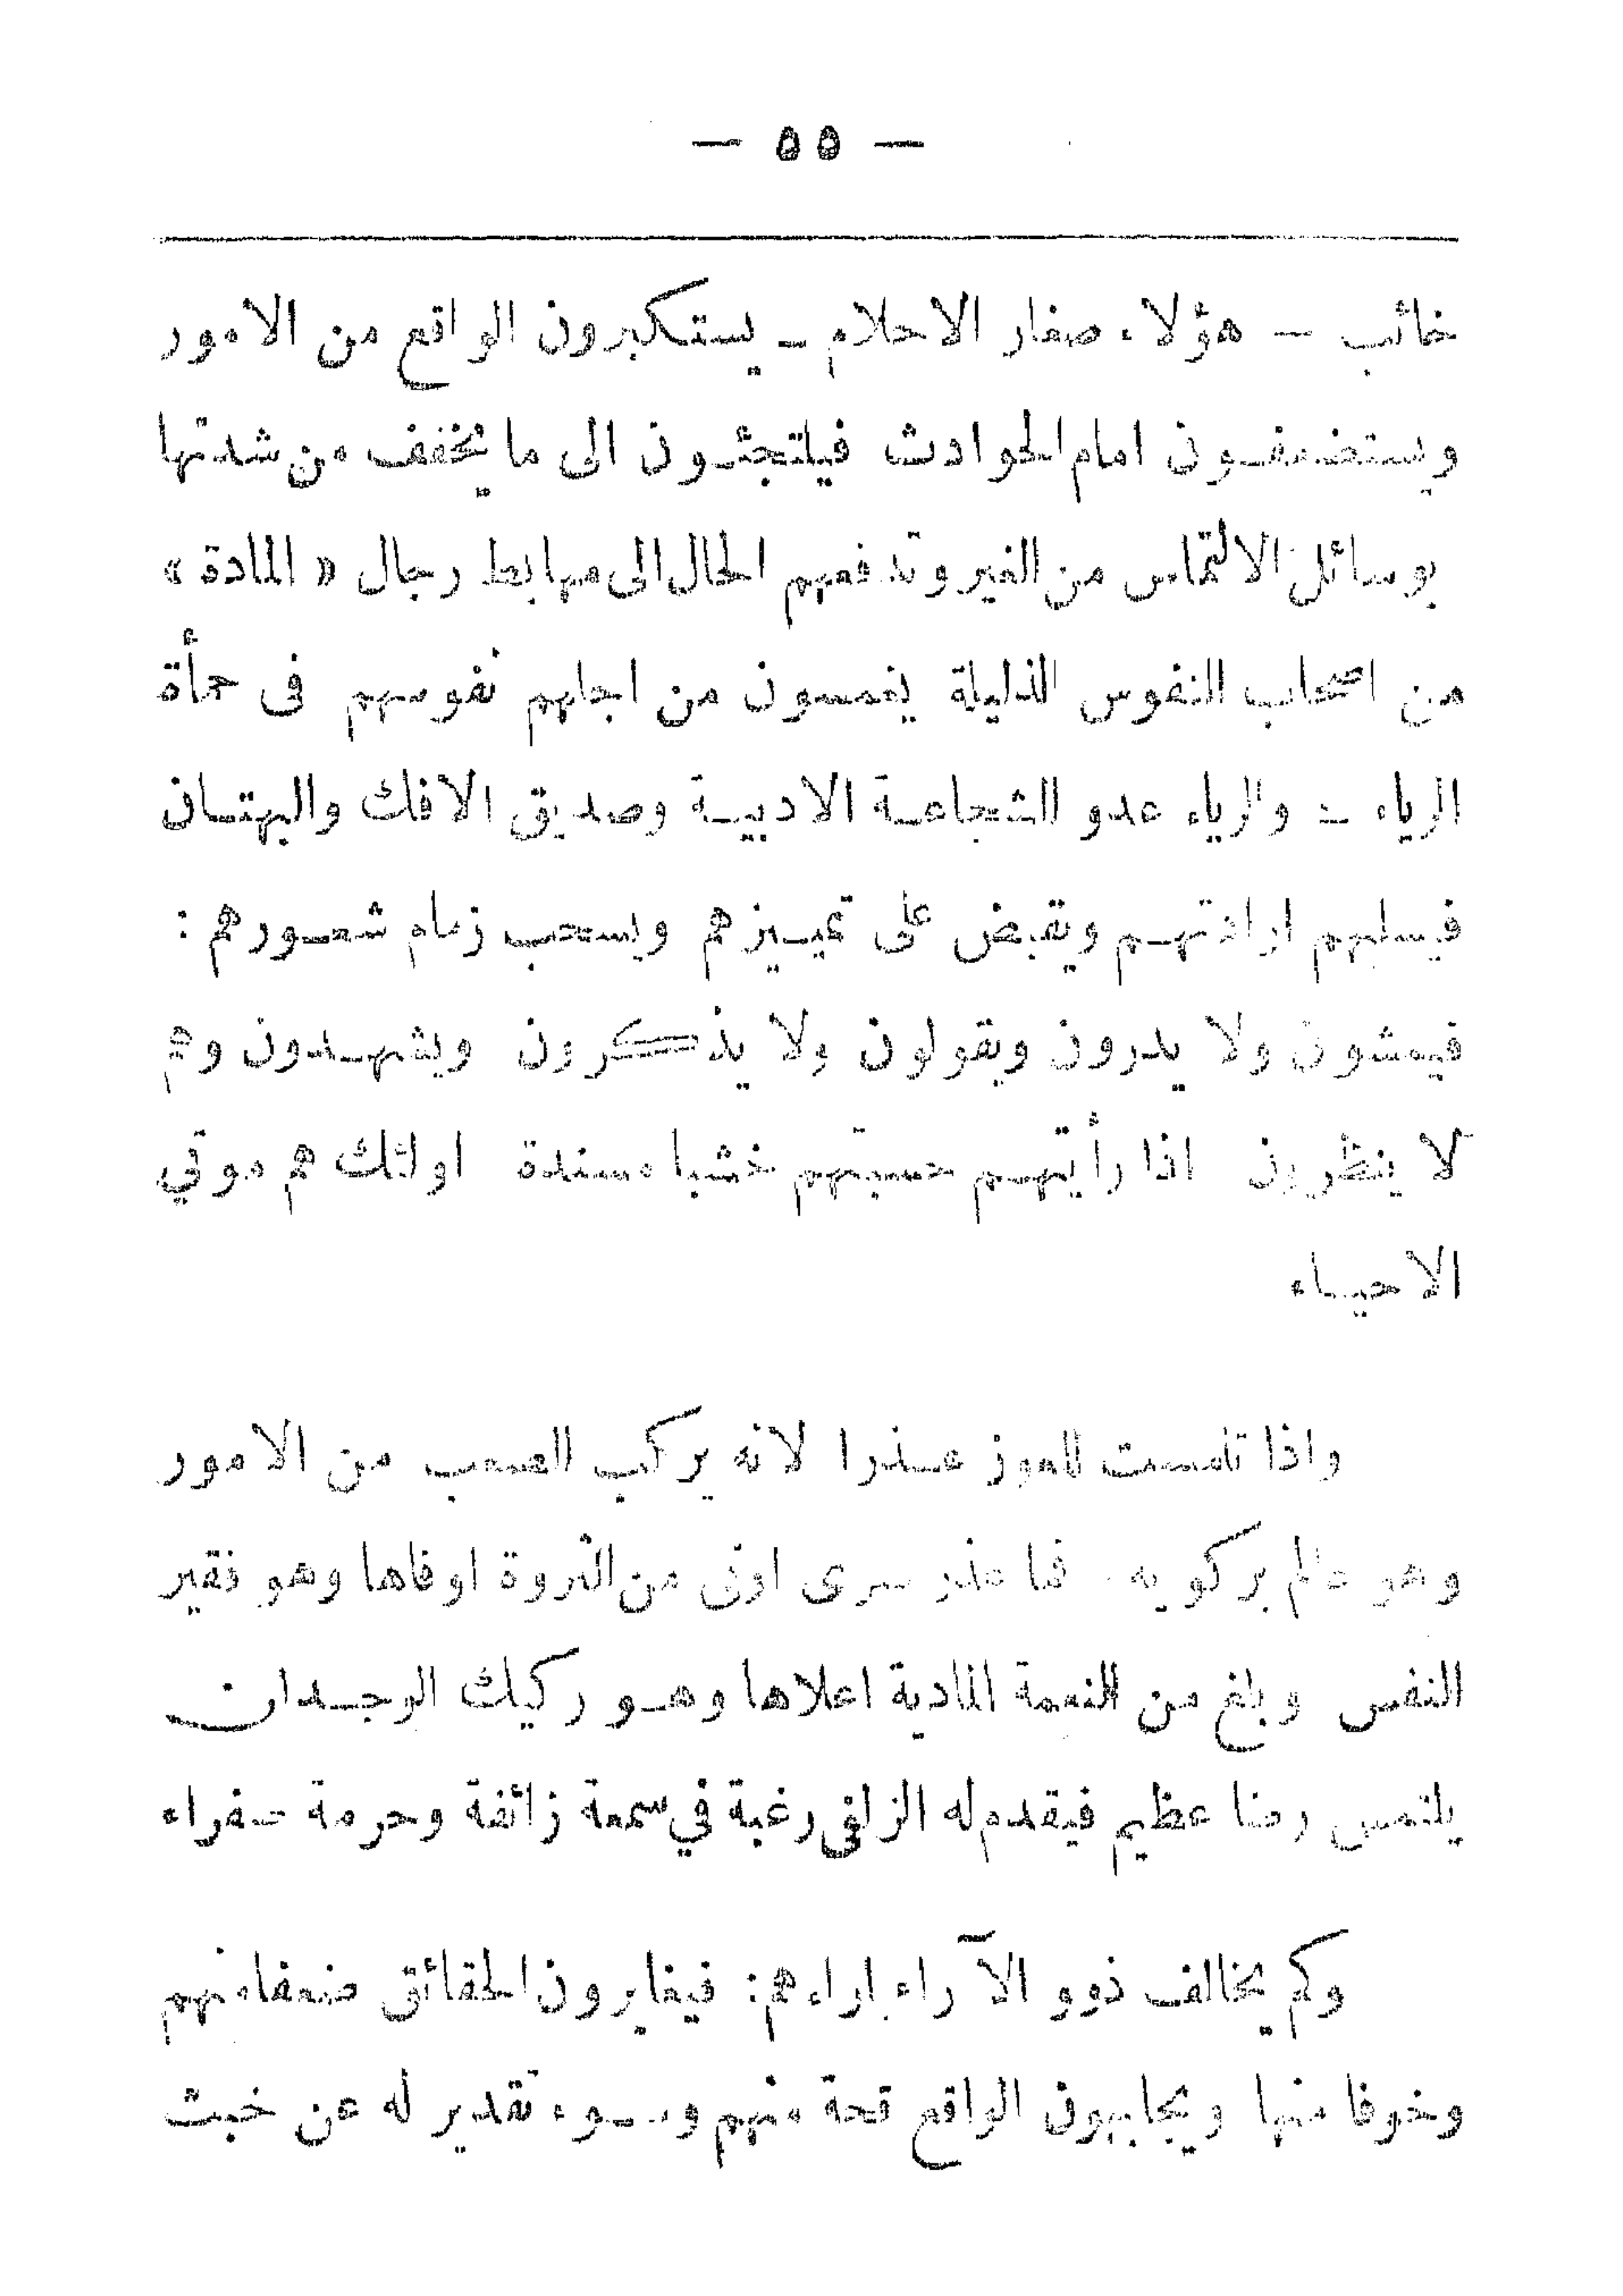 — ٥٥ —
خائب — هؤلاء صغار الاحلام — يستكبرون الواقع من الامور
ويستضعفون امام الحوادث فيلتجئون الى ما يخفف من شدتها
بوسائل الالتماس من الغير وتدفعهم الحال الى مهابط رجال « المادة »
من اصحاب النفوس الذليلة يغمسون من اجلهم نفوسهم فى حمأة
الرياء — والرياء عدو الشجاعة الادبية وصديق الافك والبهتان
فيسلبهم ارادتهم ويقبض على تمييزهم ويسحب زمام شعورهم :
فيمشون ولا يدرون ويقولون ولا يذكرون ويشهدون وهم
لا ينظرون اذا رأيتهم حسبتهم خشبا مسندة اولئك هم موتي
الاحياء
واذا تلمست للمعوز عذرا لانه يركب الصعب من الامور
وهو عالم بركوبه . فما عذر سرى اوتى من الثروة اوفاها وهو فقير
النفس وبلغ من النعمة المادية اعلاها وهو ركيك الوجدان
يلتمس رضا عظيم فيقدم له الزلفى رغبة في سمعة زائفة وحرمة صفراء
وكم يخالف ذوو الآراء اراءهم : فيغايرون الحقائق ضعفا منهم
وخوفا منها ويجابهون الواقع قحة منهم وسوء تقدير له عن خبث